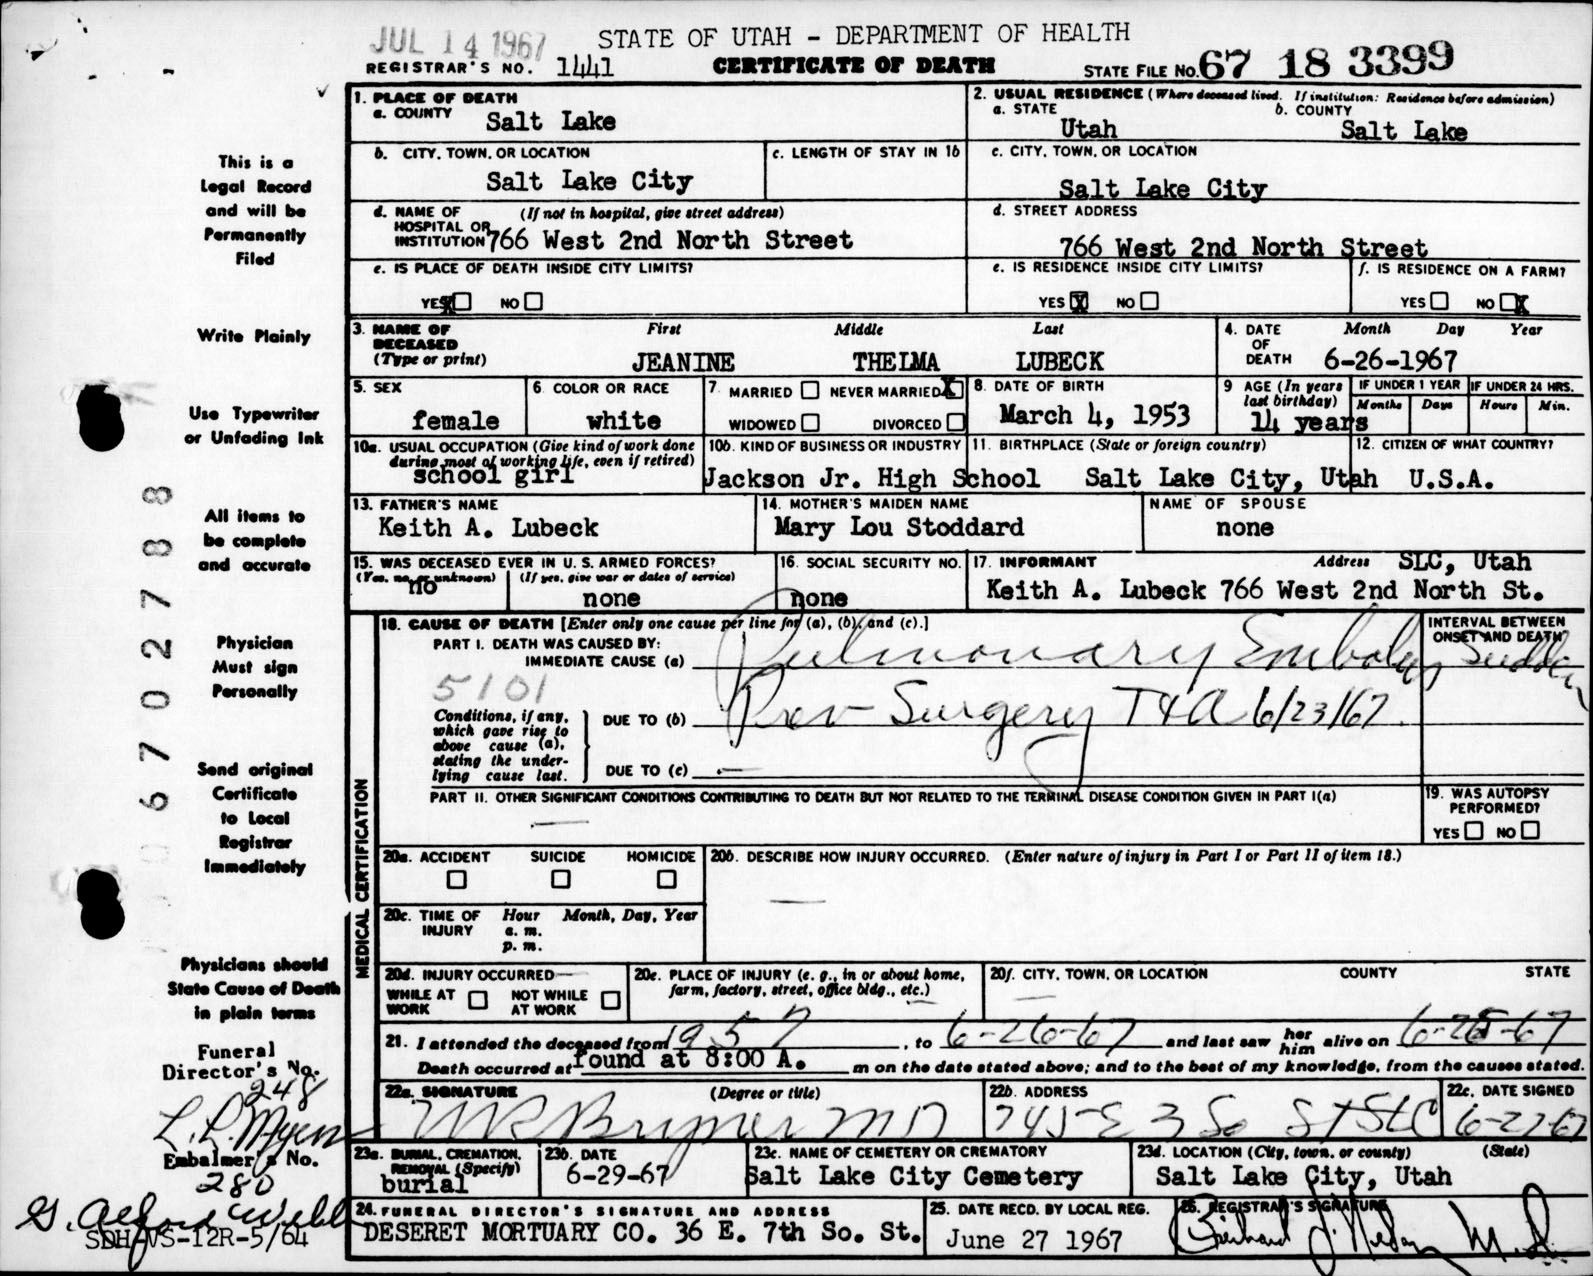 JUL 14 1967
STATE OF UTAH - DEPARTMENT OF HEALTH
REGISTRAR'S NO. 1441
CERTIFICATE OF DEATH
STATE FILE NO. 67 18 3399
This is a
Legal Record
and will be
Permanently
Filed
Write Plainly
Use Typewriter
or Unfading Ink
All items to
be complete
and accurate
Physician
Must sign
Personally
Send original
Certificate
to Local
Registrar
Immediately
Physicians should
State Cause of Death
in plain terms
Funeral
Director's No.
248
L. L. Myers
Embalmer's No.
280
G. Alford Webb
SDH-VS-12R-5/64
0 6 7 0 2 7 8 8
1. PLACE OF DEATH
a. COUNTY Salt Lake
2. USUAL RESIDENCE (Where deceased lived. If institution: Residence before admission)
a. STATE Utah b. COUNTY Salt Lake
b. CITY, TOWN, OR LOCATION Salt Lake City
c. LENGTH OF STAY IN 1b
c. CITY, TOWN, OR LOCATION Salt Lake City
d. NAME OF HOSPITAL OR INSTITUTION (If not in hospital, give street address) 766 West 2nd North Street
d. STREET ADDRESS 766 West 2nd North Street
e. IS PLACE OF DEATH INSIDE CITY LIMITS?
YES X NO
e. IS RESIDENCE INSIDE CITY LIMITS?
YES X NO
f. IS RESIDENCE ON A FARM?
YES NO X
3. NAME OF DECEASED (Type or print) First Middle Last
JEANINE THELMA LUBECK
4. DATE OF DEATH Month Day Year
6-26-1967
5. SEX female
6. COLOR OR RACE white
7. MARRIED NEVER MARRIED X
WIDOWED DIVORCED
8. DATE OF BIRTH March 4, 1953
9 AGE (In years last birthday) 14 years
IF UNDER 1 YEAR Months Days
IF UNDER 24 HRS. Hours Min.
10a. USUAL OCCUPATION (Give kind of work done during most of working life, even if retired) school girl
10b. KIND OF BUSINESS OR INDUSTRY Jackson Jr. High School
11. BIRTHPLACE (State or foreign country) Salt Lake City, Utah
12. CITIZEN OF WHAT COUNTRY? U.S.A.
13. FATHER'S NAME Keith A. Lubeck
14. MOTHER'S MAIDEN NAME Mary Lou Stoddard
NAME OF SPOUSE none
15. WAS DECEASED EVER IN U. S. ARMED FORCES?
(Yes, no, or unknown) no (If yes, give war or dates of service) none
16. SOCIAL SECURITY NO. none
17. INFORMANT Address SLC, Utah
Keith A. Lubeck 766 West 2nd North St.
MEDICAL CERTIFICATION
18. CAUSE OF DEATH [Enter only one cause per line for (a), (b), and (c).]
PART I. DEATH WAS CAUSED BY:
IMMEDIATE CAUSE (a) Pulmonary Embolus
INTERVAL BETWEEN ONSET AND DEATH? Sudden
5101
Conditions, if any, which gave rise to above cause (a), stating the underlying cause last.
DUE TO (b) Prev Surgery T&A 6/23/67.
DUE TO (c) —
PART II. OTHER SIGNIFICANT CONDITIONS CONTRIBUTING TO DEATH BUT NOT RELATED TO THE TERMINAL DISEASE CONDITION GIVEN IN PART I(a)
—
19. WAS AUTOPSY PERFORMED?
YES NO
20a. ACCIDENT SUICIDE HOMICIDE
20b. DESCRIBE HOW INJURY OCCURRED. (Enter nature of injury in Part I or Part II of item 18.)
—
20c. TIME OF INJURY Hour a. m. p. m. Month, Day, Year
20d. INJURY OCCURRED —
WHILE AT WORK NOT WHILE AT WORK
20e. PLACE OF INJURY (e. g., in or about home, farm, factory, street, office bldg., etc.) —
20f. CITY, TOWN, OR LOCATION COUNTY STATE
—
21. I attended the deceased from 1957, to 6-26-67 and last saw her him alive on 6-25-67
Death occurred at found at 8:00 A. m on the date stated above; and to the best of my knowledge, from the causes stated.
22a. SIGNATURE (Degree or title) MD
22b. ADDRESS 745 E 3 So St SLC
22c. DATE SIGNED 6-27-67
23a. BURIAL, CREMATION, REMOVAL (Specify) burial
23b. DATE 6-29-67
23c. NAME OF CEMETERY OR CREMATORY Salt Lake City Cemetery
23d. LOCATION (City, town, or county) (State) Salt Lake City, Utah
24. FUNERAL DIRECTOR'S SIGNATURE AND ADDRESS
DESERET MORTUARY CO. 36 E. 7th So. St.
25. DATE RECD. BY LOCAL REG.
June 27 1967
26. REGISTRAR'S SIGNATURE
M.D.